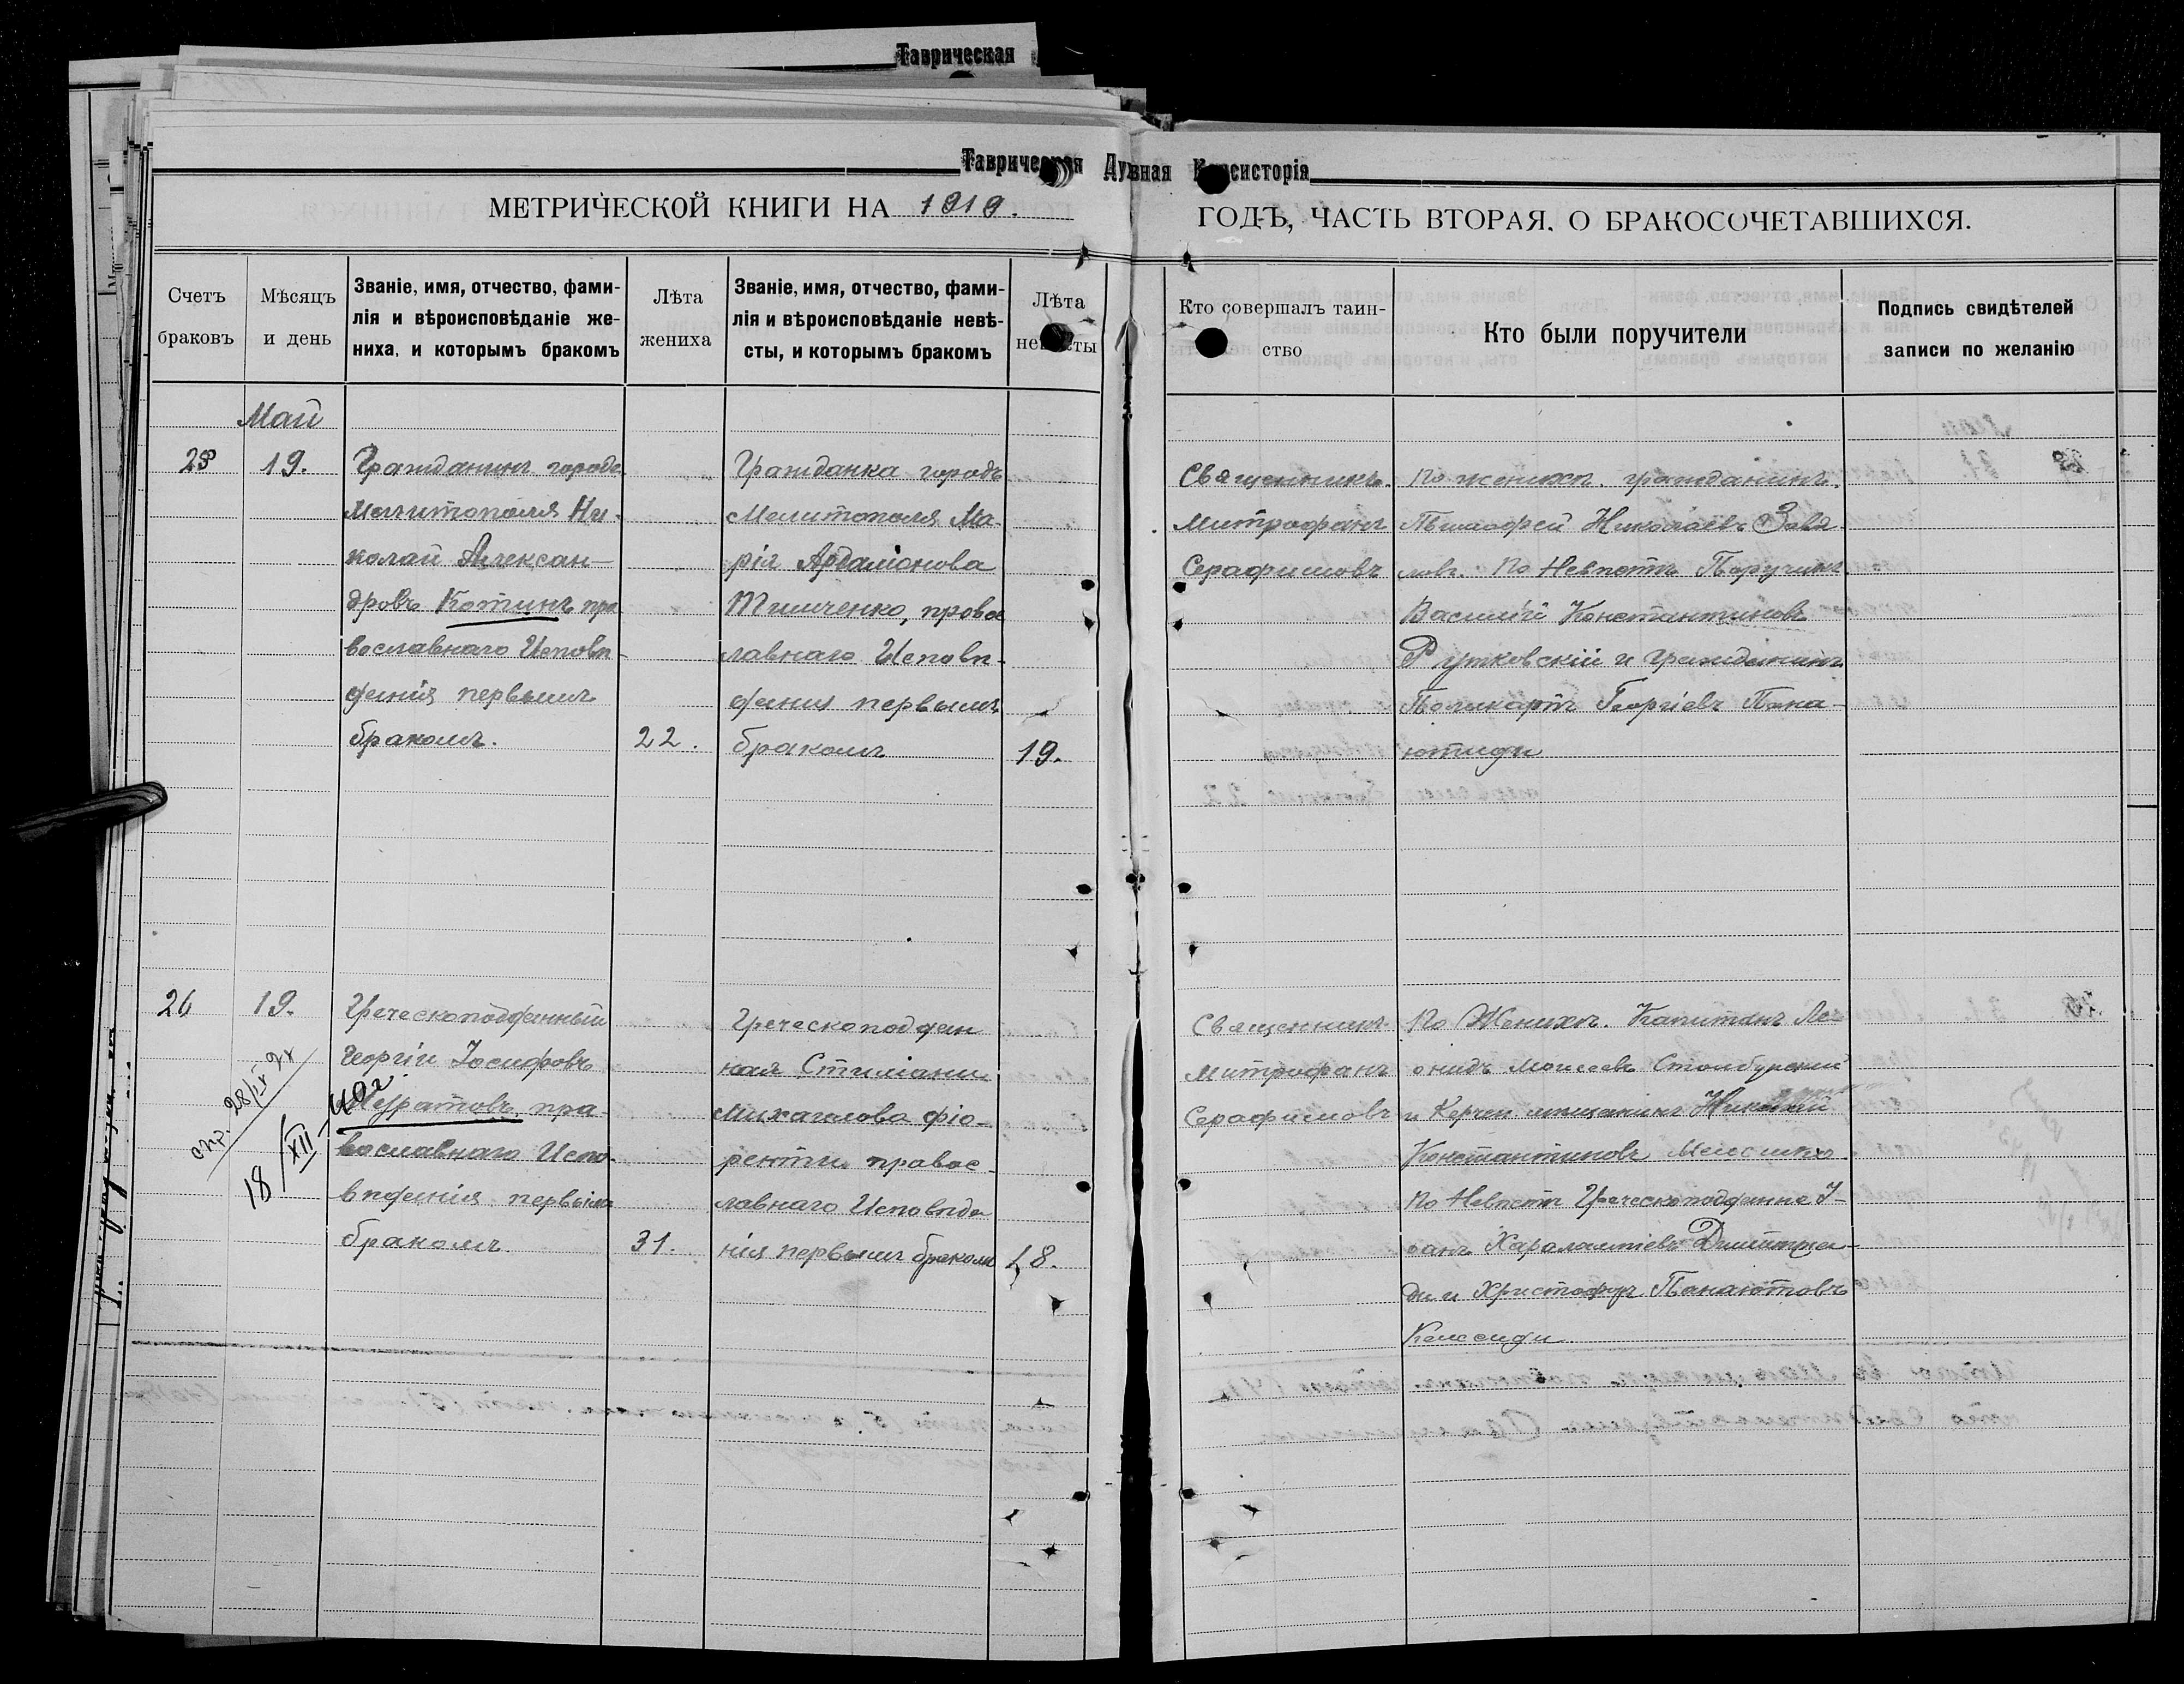 Таврическая
Таврическая Духвная Консисторія
МЕТРИЧЕСКОЙ КНИГИ НА 1919.
ГОДЪ, ЧАСТЬ ВТОРАЯ, О БРАКОСОЧЕТАВШИХСЯ.
Счетъ
браковъ
Мѣсяцъ
и день
Званіе, имя, отчество, фами-
лія и вѣроисповѣданіе же-
ниха, и которымъ бракомъ
Лѣта
жениха
Званіе, имя, отчество, фами-
лія и вѣроисповѣданіе невѣ-
сты, и которымъ бракомъ
Лѣта
невѣсты
Кто совершалъ таин-
ство
Кто были поручители
Подпись свидѣтелей
записи по желанію
Май
19.
Гражданинъ города
Мелитополя Ни-
колай Алексан-
дровъ Котинъ пра
вославнаго Исповѣ-
данія первымъ
бракомъ.
22.
Гражданка городъ
Мелитополя Ма-
рія Артаміонова
Тимченко, правос
лавнаго Исповѣ-
данія первымъ
бракомъ
19.
Священникъ
Митрофанъ
Серафимовъ
По женихѣ. гражданинъ
Николаевъ
По Невѣстѣ Поручикъ
Василій Константиновъ
Рутковскій и гражданинъ
Поликарпъ Георгіевъ Пана-
ютиди
26 19.
Греческоподданный
Георгій Іосифовъ
Муратовъ, пра-
вославнаго Испо-
вѣданія первымъ
бракомъ.
31.
Греческоподдан
ная Стиліани
Михаилова Фіо-
ренти правос-
лавнаго Исповѣда
нія первымъ бракомъ
18.
Священникъ
Митрофанъ
Серафимовъ
По Женихѣ. Капитанъ Ле-
онидъ Моисеевъ Столбурскій
и Керчен. мѣщанинъ Николай
Константиновъ
По Невѣстѣ Греческоподданные І-
оанъ Харалампіевъ Димитріа-
ди и Христофоръ Панаютовъ
Кессиди
спр. 28/IX 24
18/XII-40г